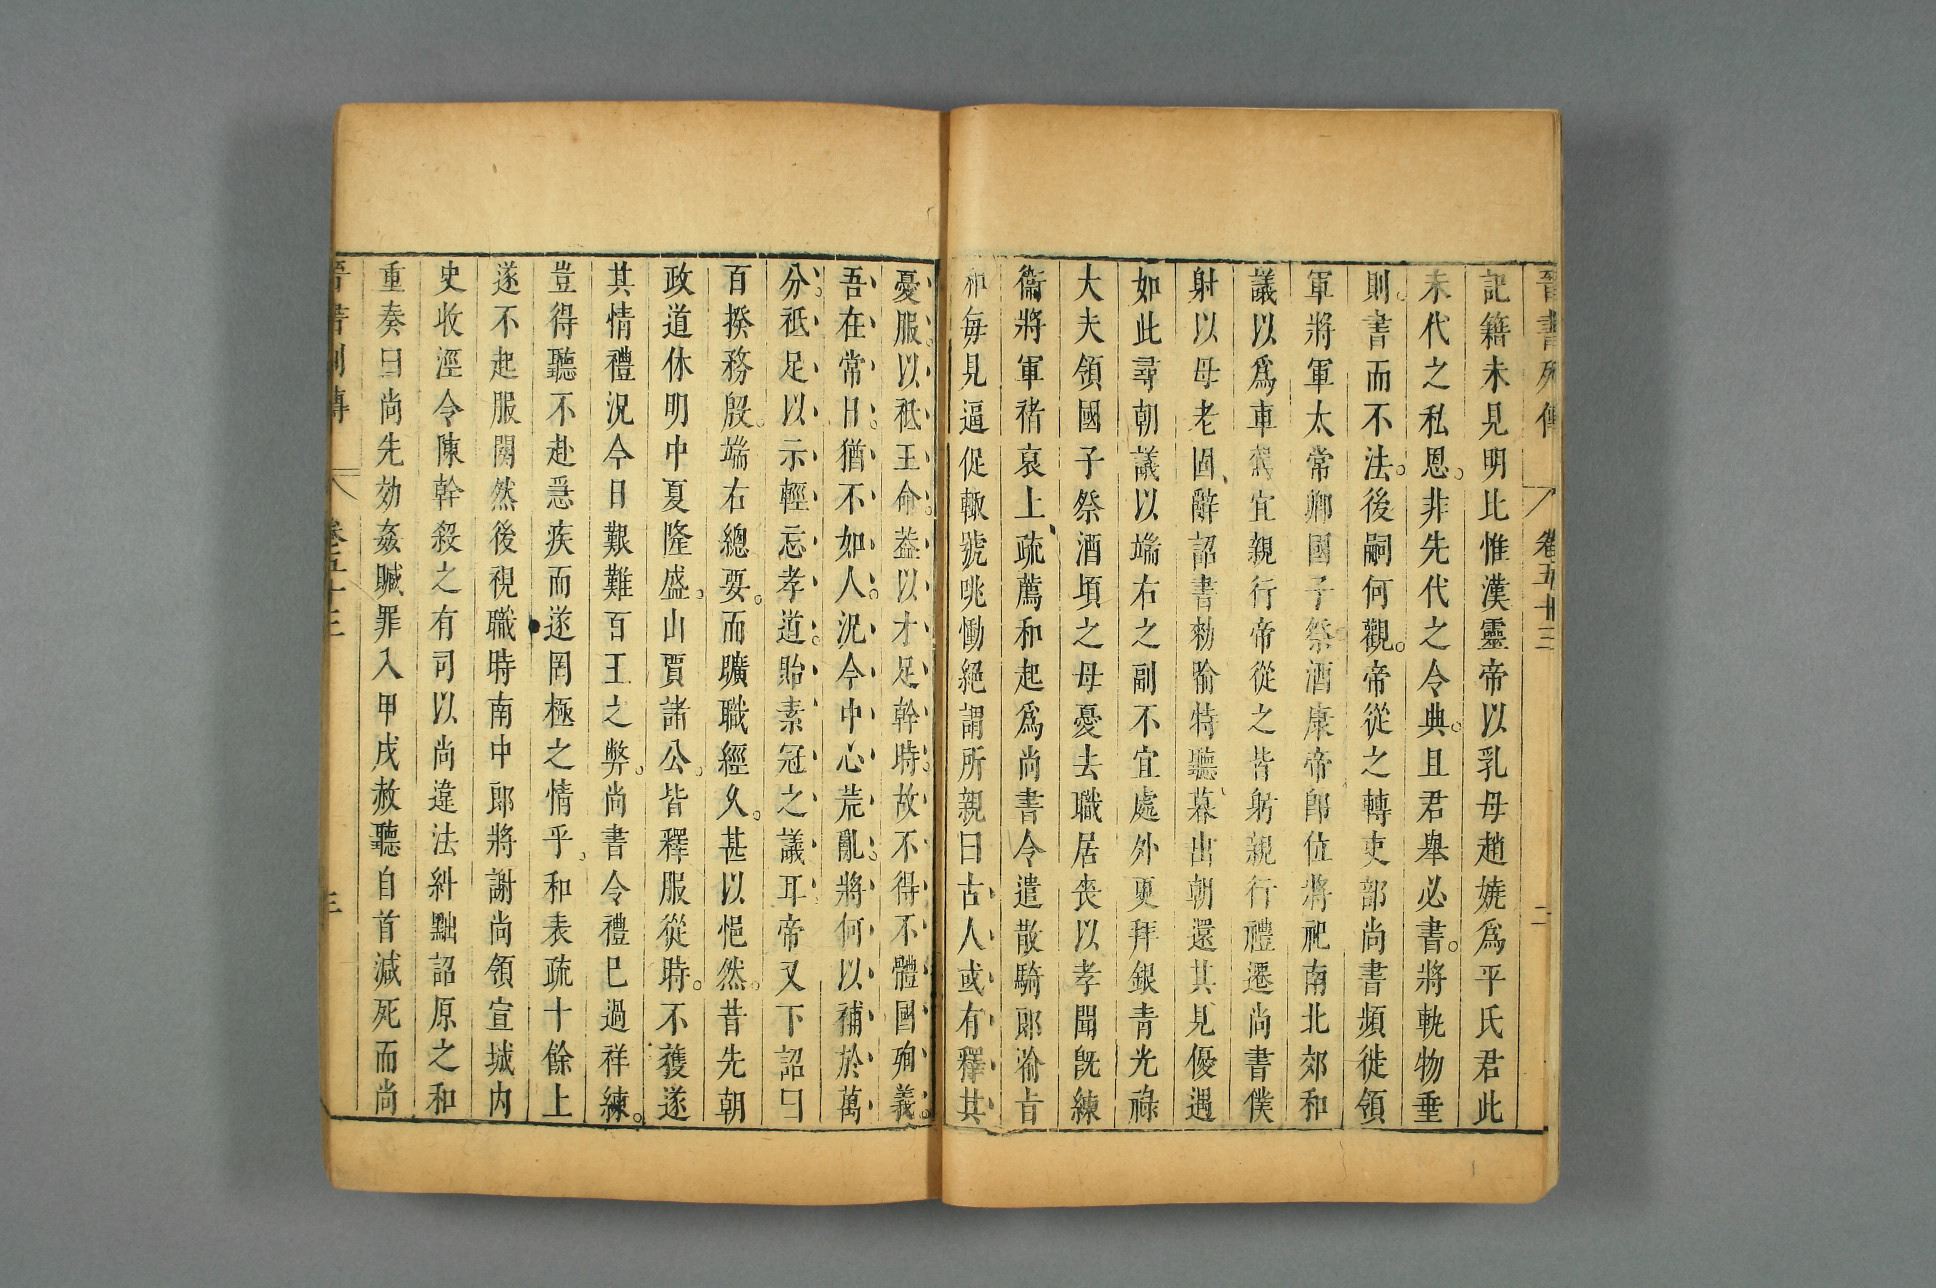 晉書列傳 卷五十三 二
記籍未見明比惟漢靈帝以乳母趙嬈爲平氏君此
末代之私恩。非先代之令典。且君舉必書。將軌物垂
則。書而不法。後嗣何觀。帝從之轉吏部尚書頻徙領
軍將軍太常卿國子祭酒康帝卽位將祀南北郊和
議以爲車駕宜親行帝從之皆躬親行禮遷尚書僕
射以母老固辭詔書勑喻特聽暮出朝還其見優遇
如此尋朝議以端右之副不宜處外更拜銀青光祿
大夫領國子祭酒頃之母憂去職居喪以孝聞旣練
衞將軍褚裒上疏薦和起爲尚書令遣散騎郎渝旨
和每見逼促輒號咷慟絕謂所親曰古人或有釋其
憂服以祗王命。葢以才足幹時。故不得不體國殉義。
吾在常日。猶不如人。況今中心荒亂。將何以補於萬
分。祗足以示輕忘孝道。貽素冠之議耳帝又下詔曰
百揆務殷。端右總要。而曠職經久。甚以悒然。昔先朝
政道休明中夏隆盛。山賈諸公。皆釋服從時。不獲遂
其情禮況今日艱難百王之弊。尚書令禮已過祥練。
豈得聽不赴急疾而遂罔極之情乎。和表疏十餘上
遂不起服闋然後視職時南中郎將謝尚領宣城內
史收涇令陳幹殺之有司以尚違法糾黜詔原之和
重奏曰尚先効姦贓罪入甲戌赦聽自首減死而尚
晉書列傳 卷五十三 三